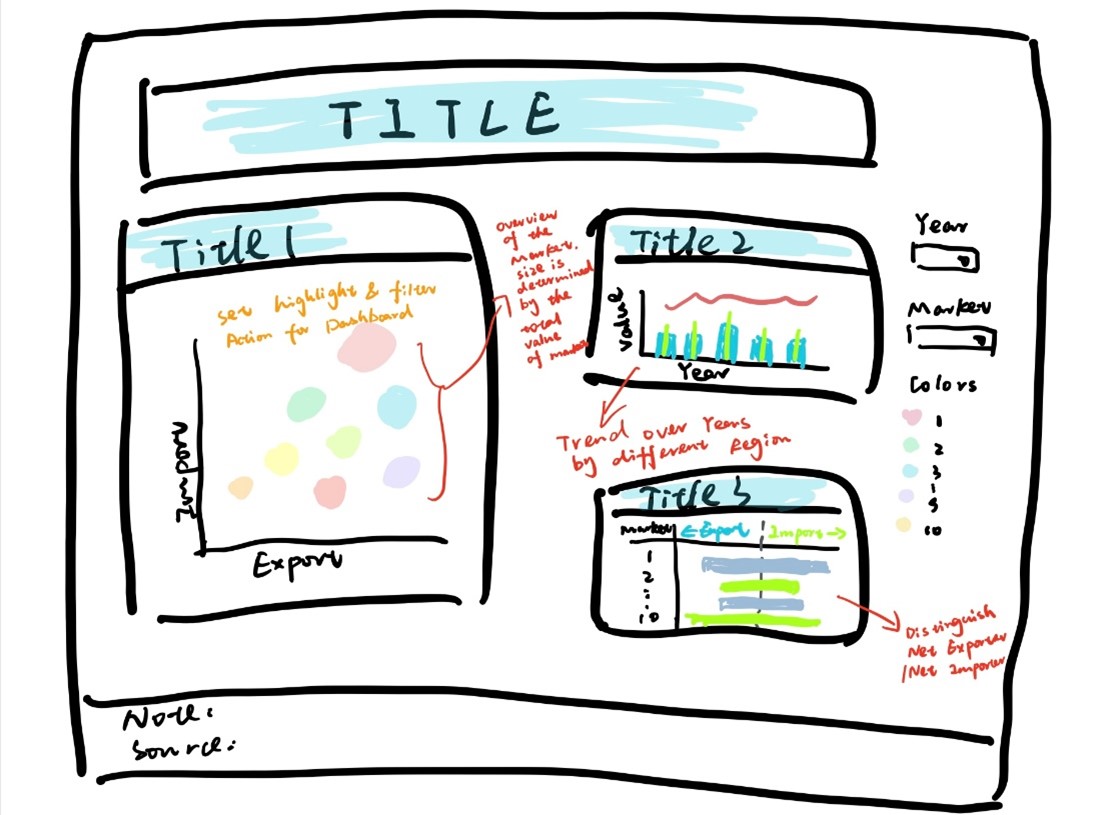 TITLE
Title 1
set highlight & filter
Action for Dashboard
Import
Export
overview
of the
market.
size is
determined
by the
total
value
of market
Title 2
value
Year
Trend over Years
by different Region
Title 3
Market
← Export
Import →
1
2
⋮
10
Distinguish
Net Exporter
/Net Importer
Year
Market
Colors
1
2
3
10
Note:
Source: